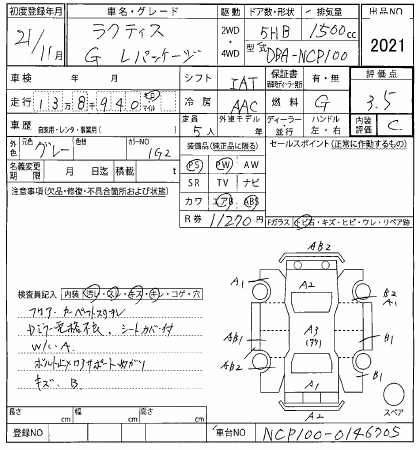 初度登録年月 車名・グレード 駆動 ドア数・形状 排気量 出品NO
21/11月 ラクティス G Lパッケージ 2WD・4WD 5HB 1500cc 2021
型式 DBA-NCP100
車検 年 月 シフト IAT 保証書 有・無 評価点
走行 13万8千940 km マイル 冷房 AAC 燃料 G 3.5
車歴 自家用・レンタ・事業用( ) 定員 5人 外車モデル 年 ディーラー・並行 ハンドル 左・右 内装評価 C
外色 元色 グレー 色替 カラーNO 1G2 装備品(純正品に限る) セールスポイント(正常に作動するもの)
名義変更期限 月 日迄 積載 t PS PW AW
注意事項(欠品・修復・不具合箇所および状態) SR TV ナビ
カワ エアB ABS
R券 11270円 Fガラス トビ石・キズ・ヒビ・ワレ・リペア跡
検査員記入 内装(汚レ・スレ・キズ・キレ・コゲ・穴
フロアーカーペットスリキレ
シートカバー付
W/C.A
キズ B
AB2
A1 A2 B2 A1
AB1 A3 B1
AB2 B1
A1
A2
スペア
長さ cm 幅 cm 高さ cm
登録NO 車台NO NCP100-0146705